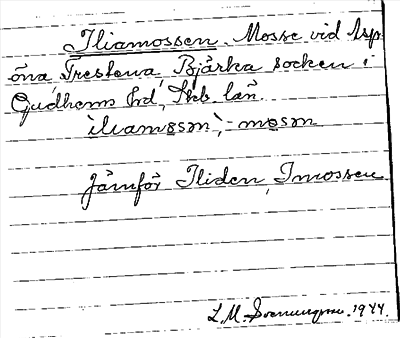 Iliamossen. Mosse vid Asp-
öna Trestena, Bjärka socken i
Gudhems hd, Skb. län.
iliamɵsən, -mɵsən
Jämför Iliden, Imossen
L. M. 1944.